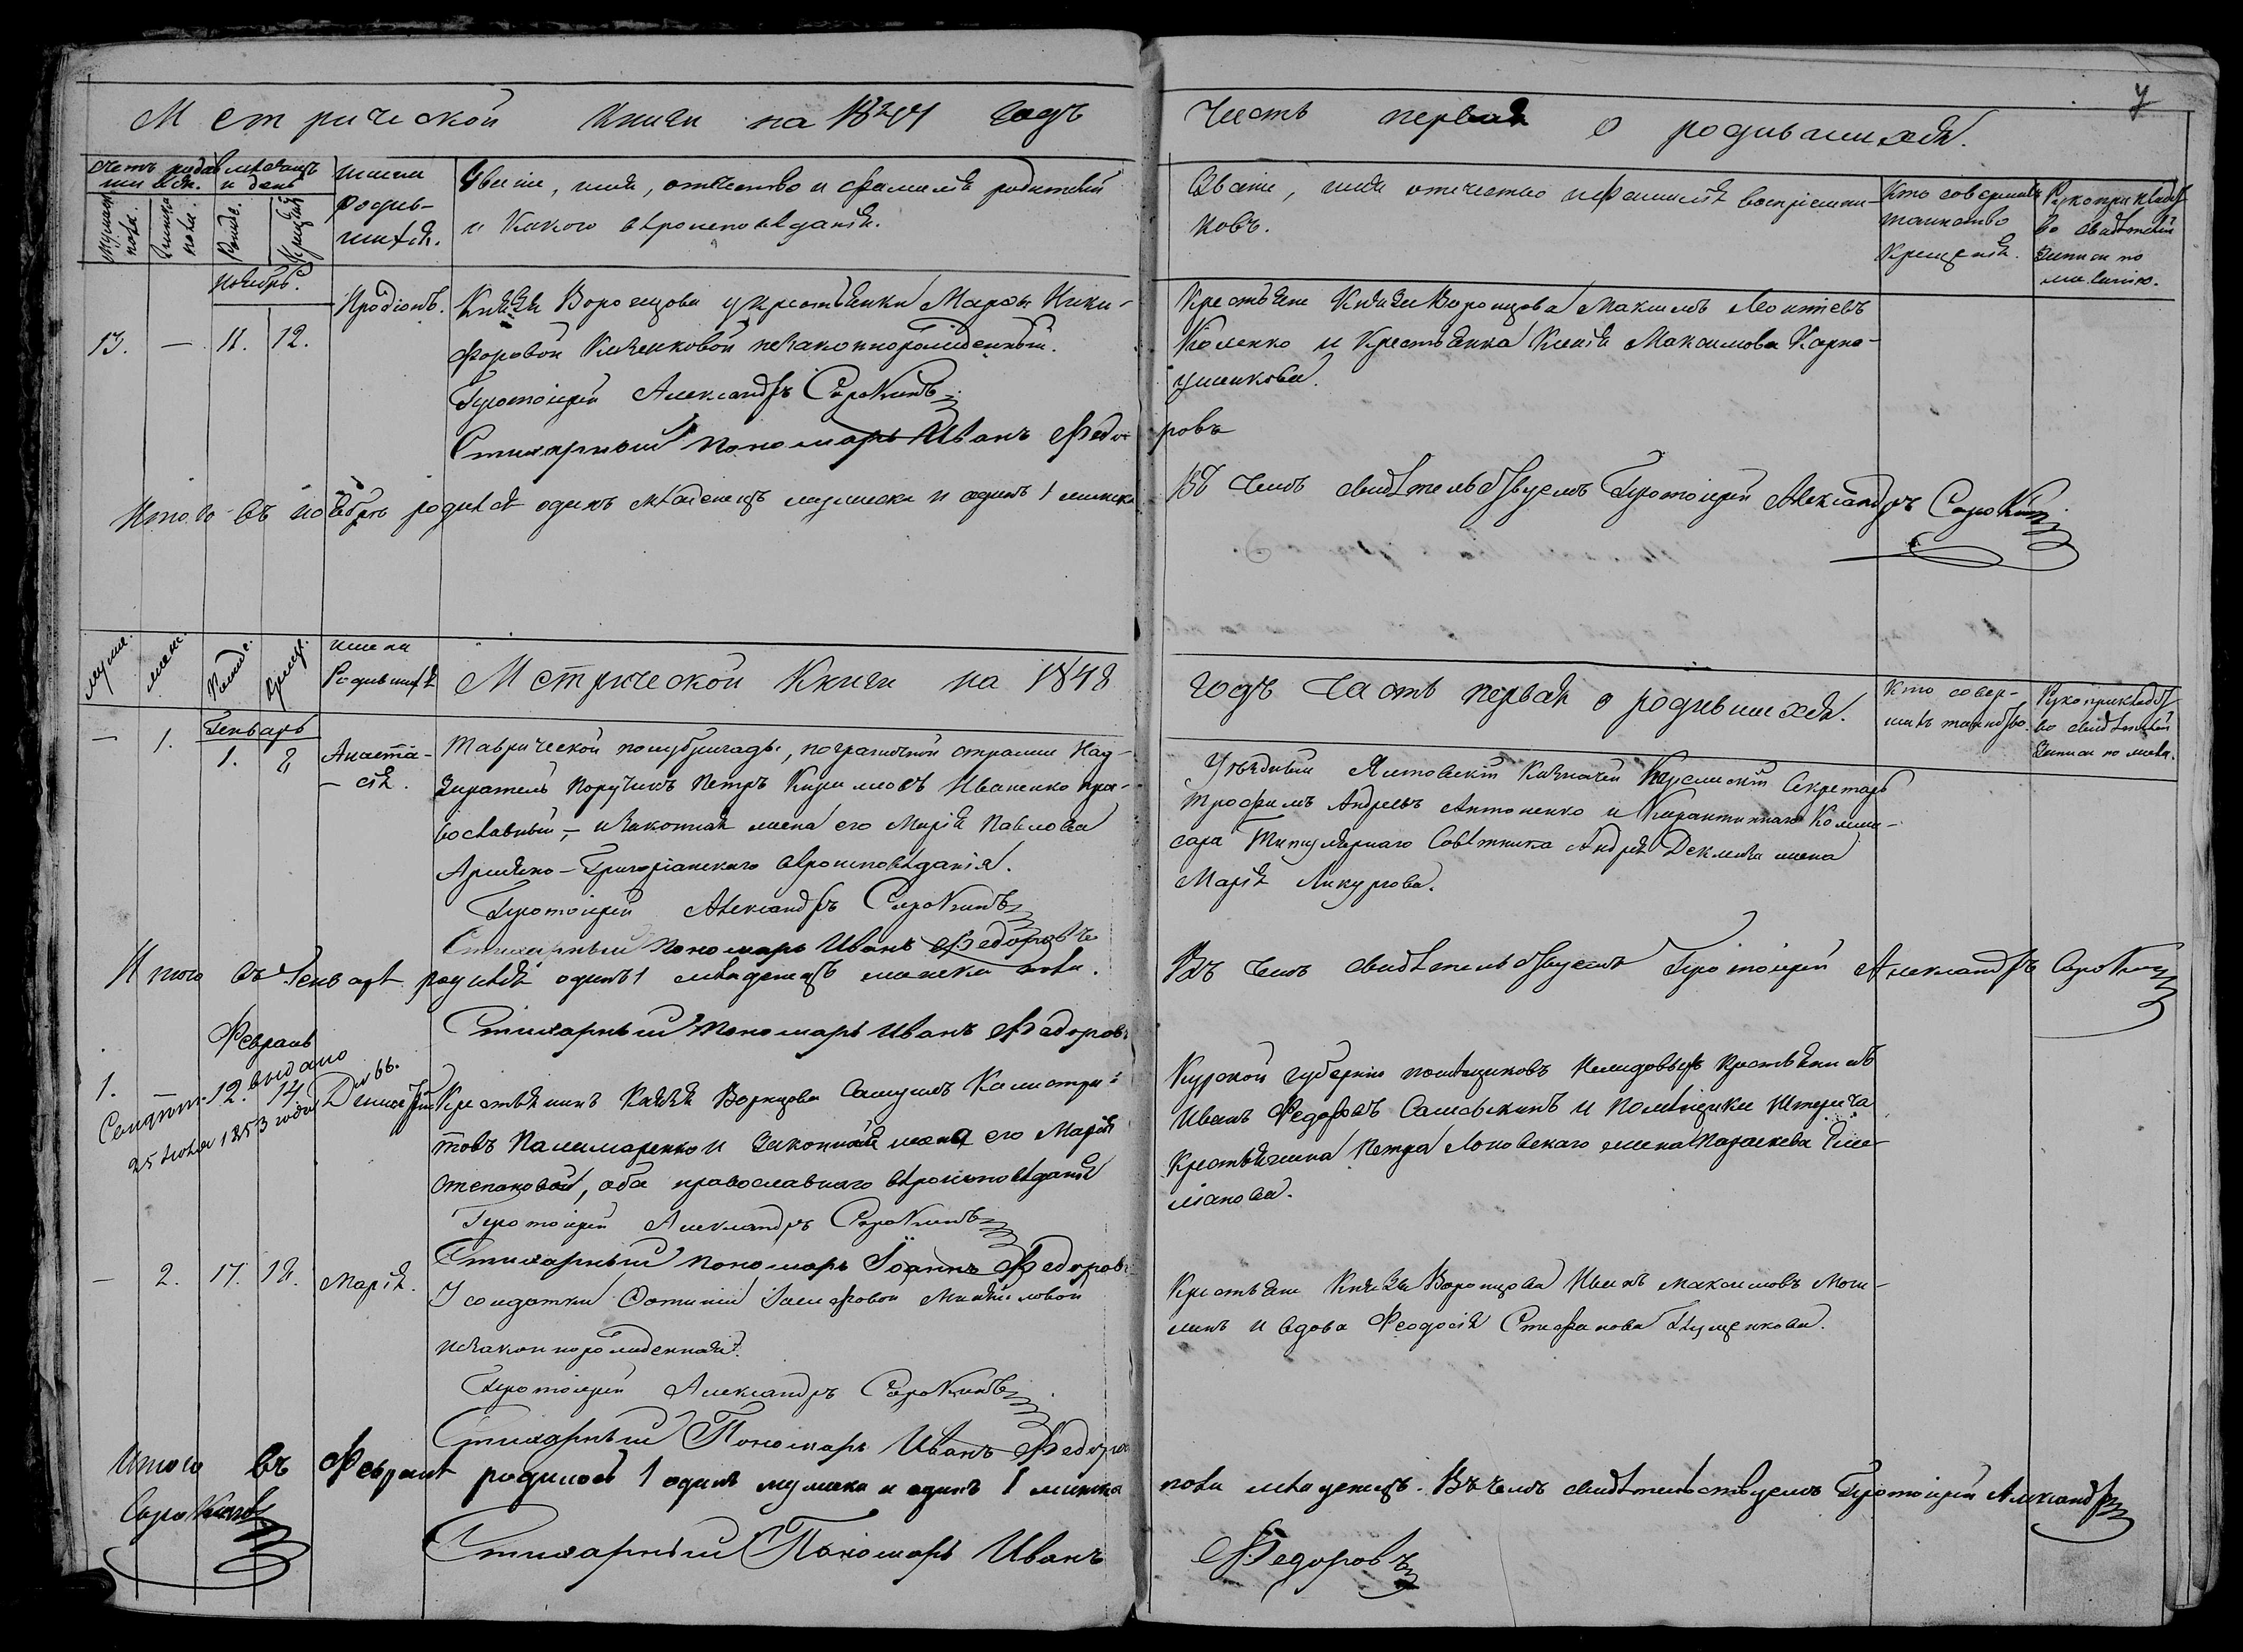 Метрической книги на 1847 годъ
Часть первая о родившихся.
Счетъ родив-
шихся.
Мѣсяцъ
и день
Имена
родив-
шихся.
Званіе, имя, отчество и фамилія родителей
и какого вѣроисповѣданія.
Званіе, имя отчество и фамилія воспріемни-
ковъ.
Кто совершалъ
таинство
крещенія.
Рукоприкладст
во свидѣтелей
записи по
желанію.
Мужеска
пола.
Женска
пола.
Рожде.
Крещенія
Ноябрь.
13. — 11. 12. Иродіонъ.
Князя Воронцова у крестьянки Марѳы Ники-
форовой незаконнорожденный.
Протоіерей Александръ Сорокинъ
Стихарный пономарь Иванъ Федо-
ровъ
Крестьяне Князя Воронцова Максимъ Леонтіевъ
Коленко и крестьянка Ксенія Максимова Карна-
ушенкова.
Итого въ ноябрѣ родился одинъ младенецъ мужеска и одинъ 1 женска
Въ чемъ свидѣтельствуемъ Протоіерей Александръ Сорокинъ
муже.
женс.
Рожде.
Крещ.
Имена
Родившихся
Метрической Книги на 1848
годъ Часть первая о родившихся.
Кто совер-
шалъ таинство.
Рукоприкладст
во свидѣтелей
записи по желан.
Генварь
— 1. 1. 8 Анаста-
— сія.
Таврической полубригады, пограничной стражи Над-
зиратель Поручикъ Петръ Кириловъ Иваненко пра-
вославный, — и законная жена его Марія Павлова
Армяно-Григоріанскаго вѣроисповѣданія.
Протоіерей Александръ Сорокинъ
Стихарный пономарь Иванъ Федоровъ
Уѣздный Ялтовскій Казначей Губернскій Секретарь
Трофимъ Андреевъ Антоненко и Карантиннаго Комми-
сара Титулярнаго Совѣтника Андрея жена
Марія Ликургова.
Итого въ Генварѣ родился одинъ 1 младенецъ женска пола.
Въ чемъ свидѣтельствуемъ Протоіерей Александръ Сорокинъ
Стихарный Пономарь Иванъ Федоровъ
Февраль
1. — 12. 14
выдано № 66.
25 Іюня 1853 года
Крестьянинъ Князя Воронцова Самуилъ Калистра-
товъ Паламаренко и законная жена его Марія
Степановой, оба православнаго вѣроисповѣданія
Протоіерей Александръ Сорокинъ
Стихарный пономарь Іоаннъ Федоровъ
Курской губерніи помѣщиковъ Нелидовыхъ крестьянинъ
Иванъ Федоровъ и помѣщика Штерича
крестьянина Петра жена Параскева Еме-
ліанова.
— 2. 17. 18. Марія.
У солдатки Фотиніи Михайловой
незаконнорожденная.
Протоіерей Александръ Сорокинъ
Стихарный Пономарь Иванъ Федоров
Крестьяне Князя Воронцова Иванъ Максимовъ Моги-
линъ и вдова Феодосія Стефанова Глущенкова.
Итого въ Февралѣ родилось 1 одинъ мужска и одинъ 1 женска
пола младенецъ. Въ чемъ свидѣтельствуемъ Протоіерей Александръ
Сорокинъ
Стихарный Пономарь Иванъ
Федоровъ